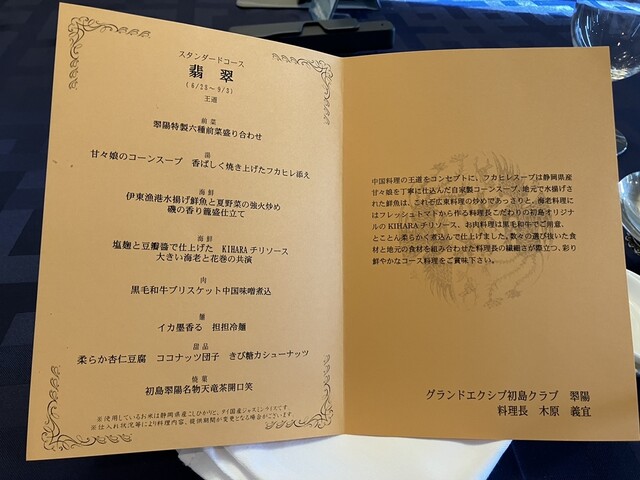 スタンダードコース
翡翠
(6/23～9/3)
王道
前菜
翠陽特製六種前菜盛り合わせ
湯
甘々娘のコーンスープ 香ばしく焼き上げたフカヒレ添え
海鮮
伊東漁港水揚げ鮮魚と夏野菜の強火炒め
磯の香り籠盛仕立て
海鮮
塩麹と豆瓣醤で仕上げた KIHARAチリソース
大きい海老と花巻の共演
肉
黒毛和牛ブリスケット中国味噌煮込
麺
イカ墨香る 担担冷麺
甜品
柔らか杏仁豆腐 ココナッツ団子 きび糖カシューナッツ
焼菓
初島翠陽名物天竜茶開口笑
※使用しているお米は静岡県産こしひかりと、タイ国産ジャスミンライスです。
※仕入れ状況等により料理内容、提供期間が変更となる場合がございます。
中国料理の王道をコンセプトに、フカヒレスープは静岡県産
甘々娘を丁寧に仕込んだ自家製コーンスープ、地元で水揚げさ
れた鮮魚は、これぞ広東料理の炒めであっさりと、海老料理に
はフレッシュトマトから作る料理長こだわりの初島オリジナ
ルのKIHARAチリソース、お肉料理は黒毛和牛でご用意、
とことん柔らかく煮込んで仕上げました。数々の選び抜いた食
材と地元の食材を組み合わせた料理長の繊細さが際立つ、彩り
鮮やかなコース料理をご賞味下さい。
グランドエクシブ初島クラブ 翠陽
料理長 木原 義宜